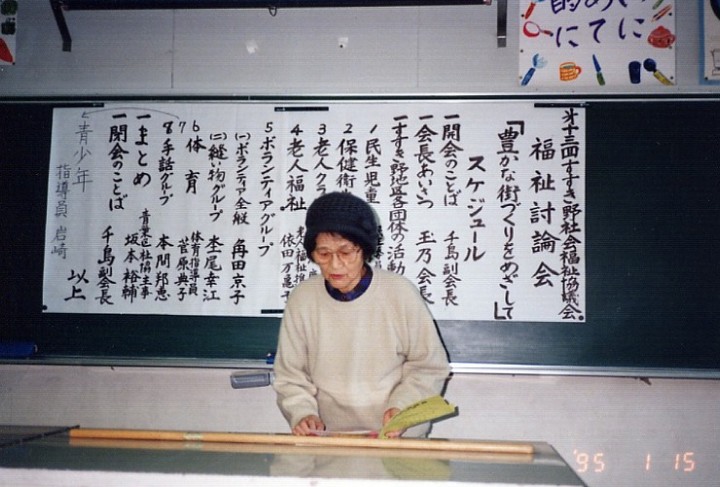 めい
的に
にて
オ十三回すすき野社会福祉協議会
福祉討論会
「豊かな街づくりをめざして」
スケジュール
一開会のことば 千島副会長
一会長あいさつ 玉乃会長
一すすき野地区各団体の活動
1民生児童
2保健衛
3老人クラ
4老人福祉 依田万亀子
5ボランティアグループ
(一)ボランティア全般 角田京子
(二)縫い物グループ 杢尾幸江
6体育 体育指導員 菅原典子
7
8手話グループ 本間邦恵
一まとめ 青葉区社協主事 坂本裕輔
一閉会のことば 千島副会長
以上
青少年 指導員 岩崎
'95 1 15